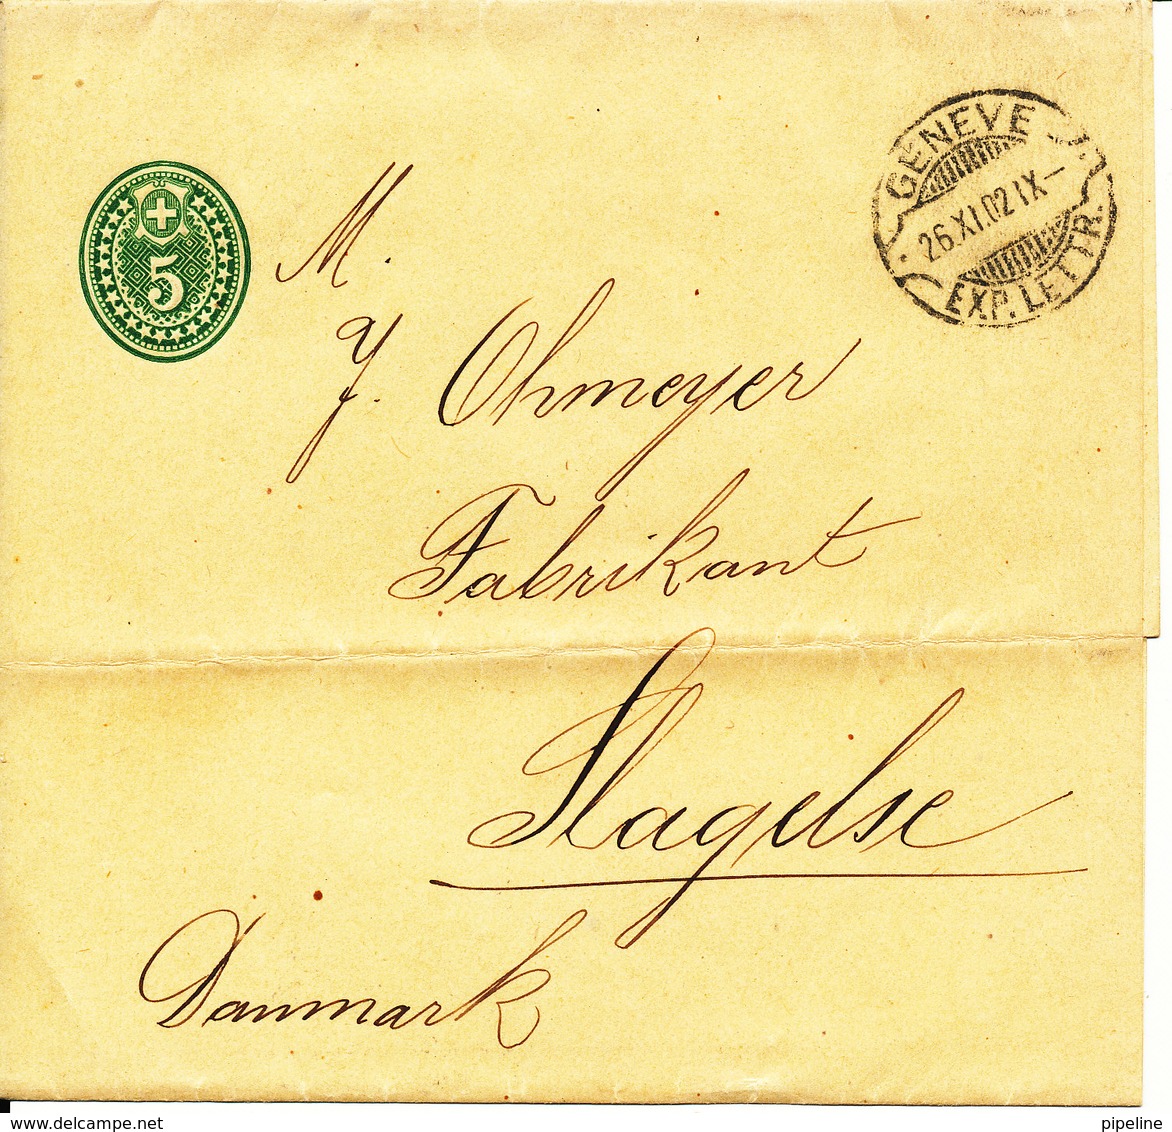 GENEVE
26.XI.02 IX–
EXP. LETTR.
5
M.
J. Ohmeyer
Fabrikant
Slagelse
Danmark
www.delcampe.net
pipeline